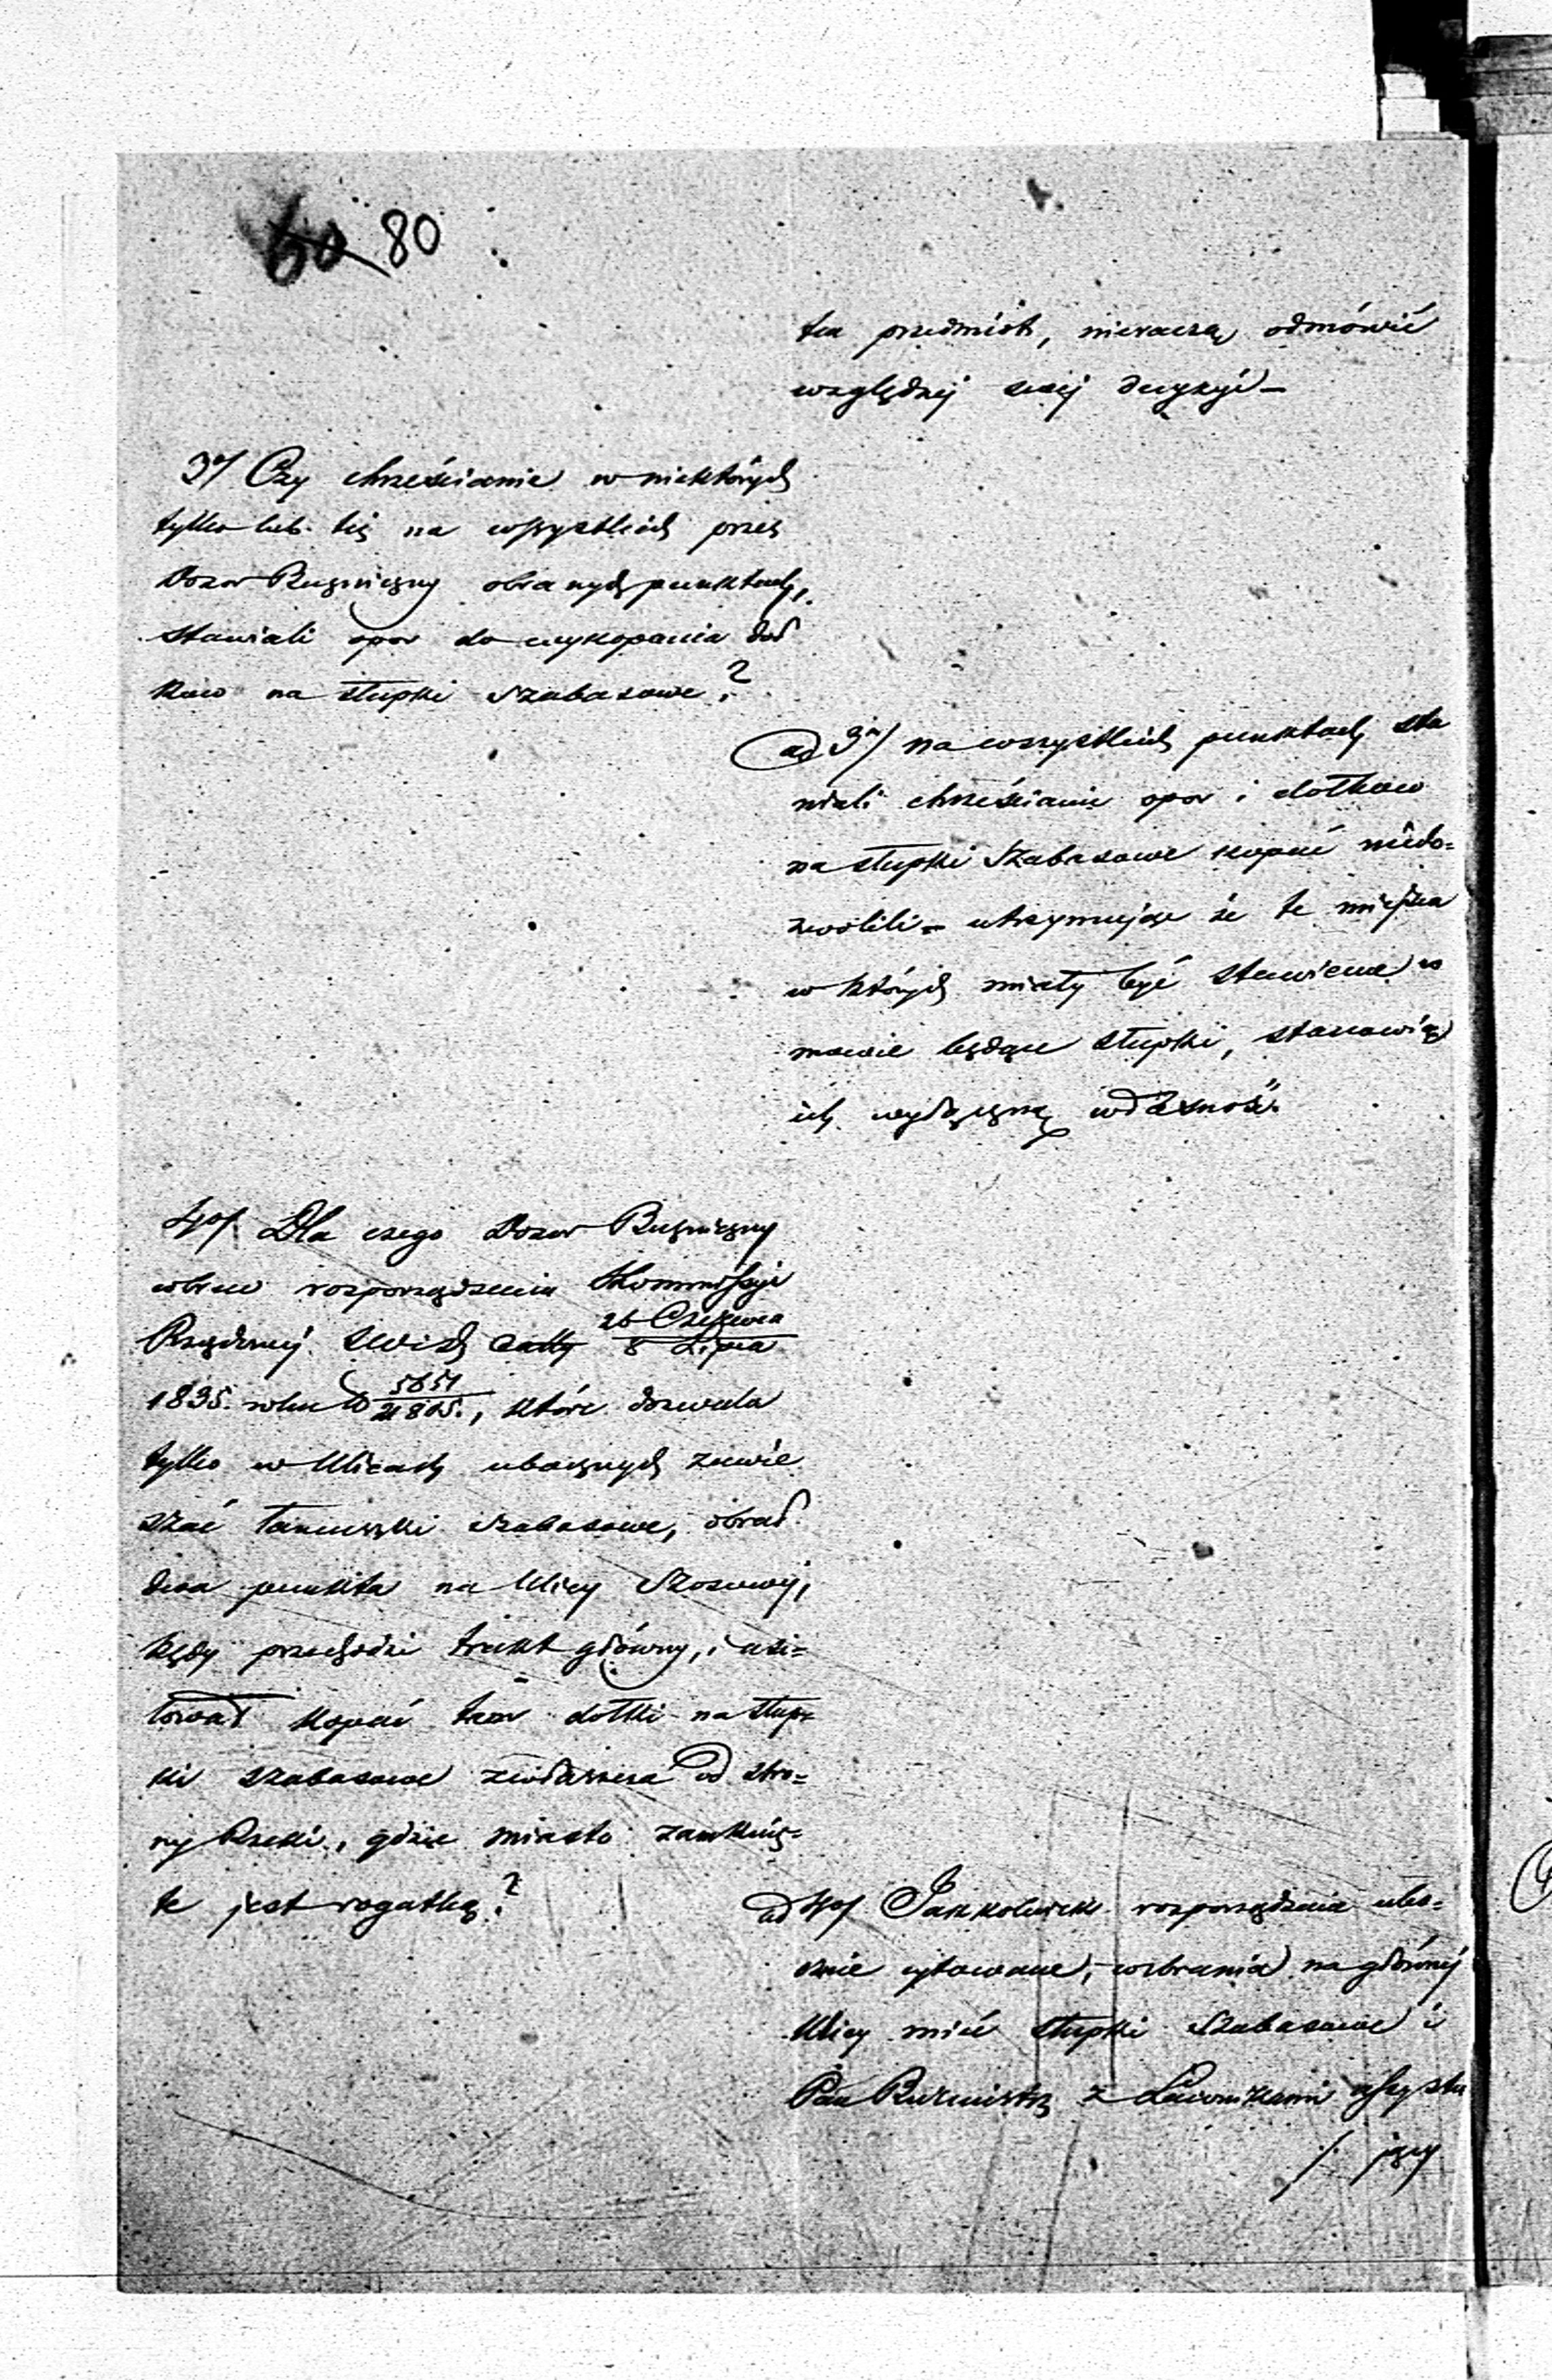 60 80
ten przedmiot, nieraczą odmówić
względnej swej decyzyi –
3o/ Czy chrześcianie w niektórych
tylko lub też na wszystkich przez
Dozor Bużniczny obranych punktach,
stawiali opor do wykopania doł
kow na słupki szabasowe?
ad 3o/ na wszystkich punktach sta
wiali chrześcianie opor i dołkow
na słupki Szabasowe kopać niedo=
zwolili = utrzymując że te miejsca
w których miały być stawiane w
mowie będące słupki, stanowią
ich wyłączną własność.
4o/ Dla czego Dozor Bużniczny
wbrew rozporządzeniu Kommissyi
Rządowej SWiD 26 Czerwca
8 Lipca
1835. roku No 5651
21805., które dozwala
tylko w Ulicach ubocznych zawie
szać łańcuszki szabasowe, obrał
dwa punkta na Ulicy Szosowej,
kędy przechodzi trakt główny, i usi=
łował kopać tam dołki na słup=
ki szabasowe zwłaszcza od stro=
ny Rzeki, gdzie miasto zamknię=
te jest rogatką?
ad 4o/ Jakkolwiek rozporządzenie ubo=
cznie cytowane, wzbrania na głównej
Ulicy mieć słupki Szabasowe i
Pan Burmistrz z Ławnikami assystu
/. jący